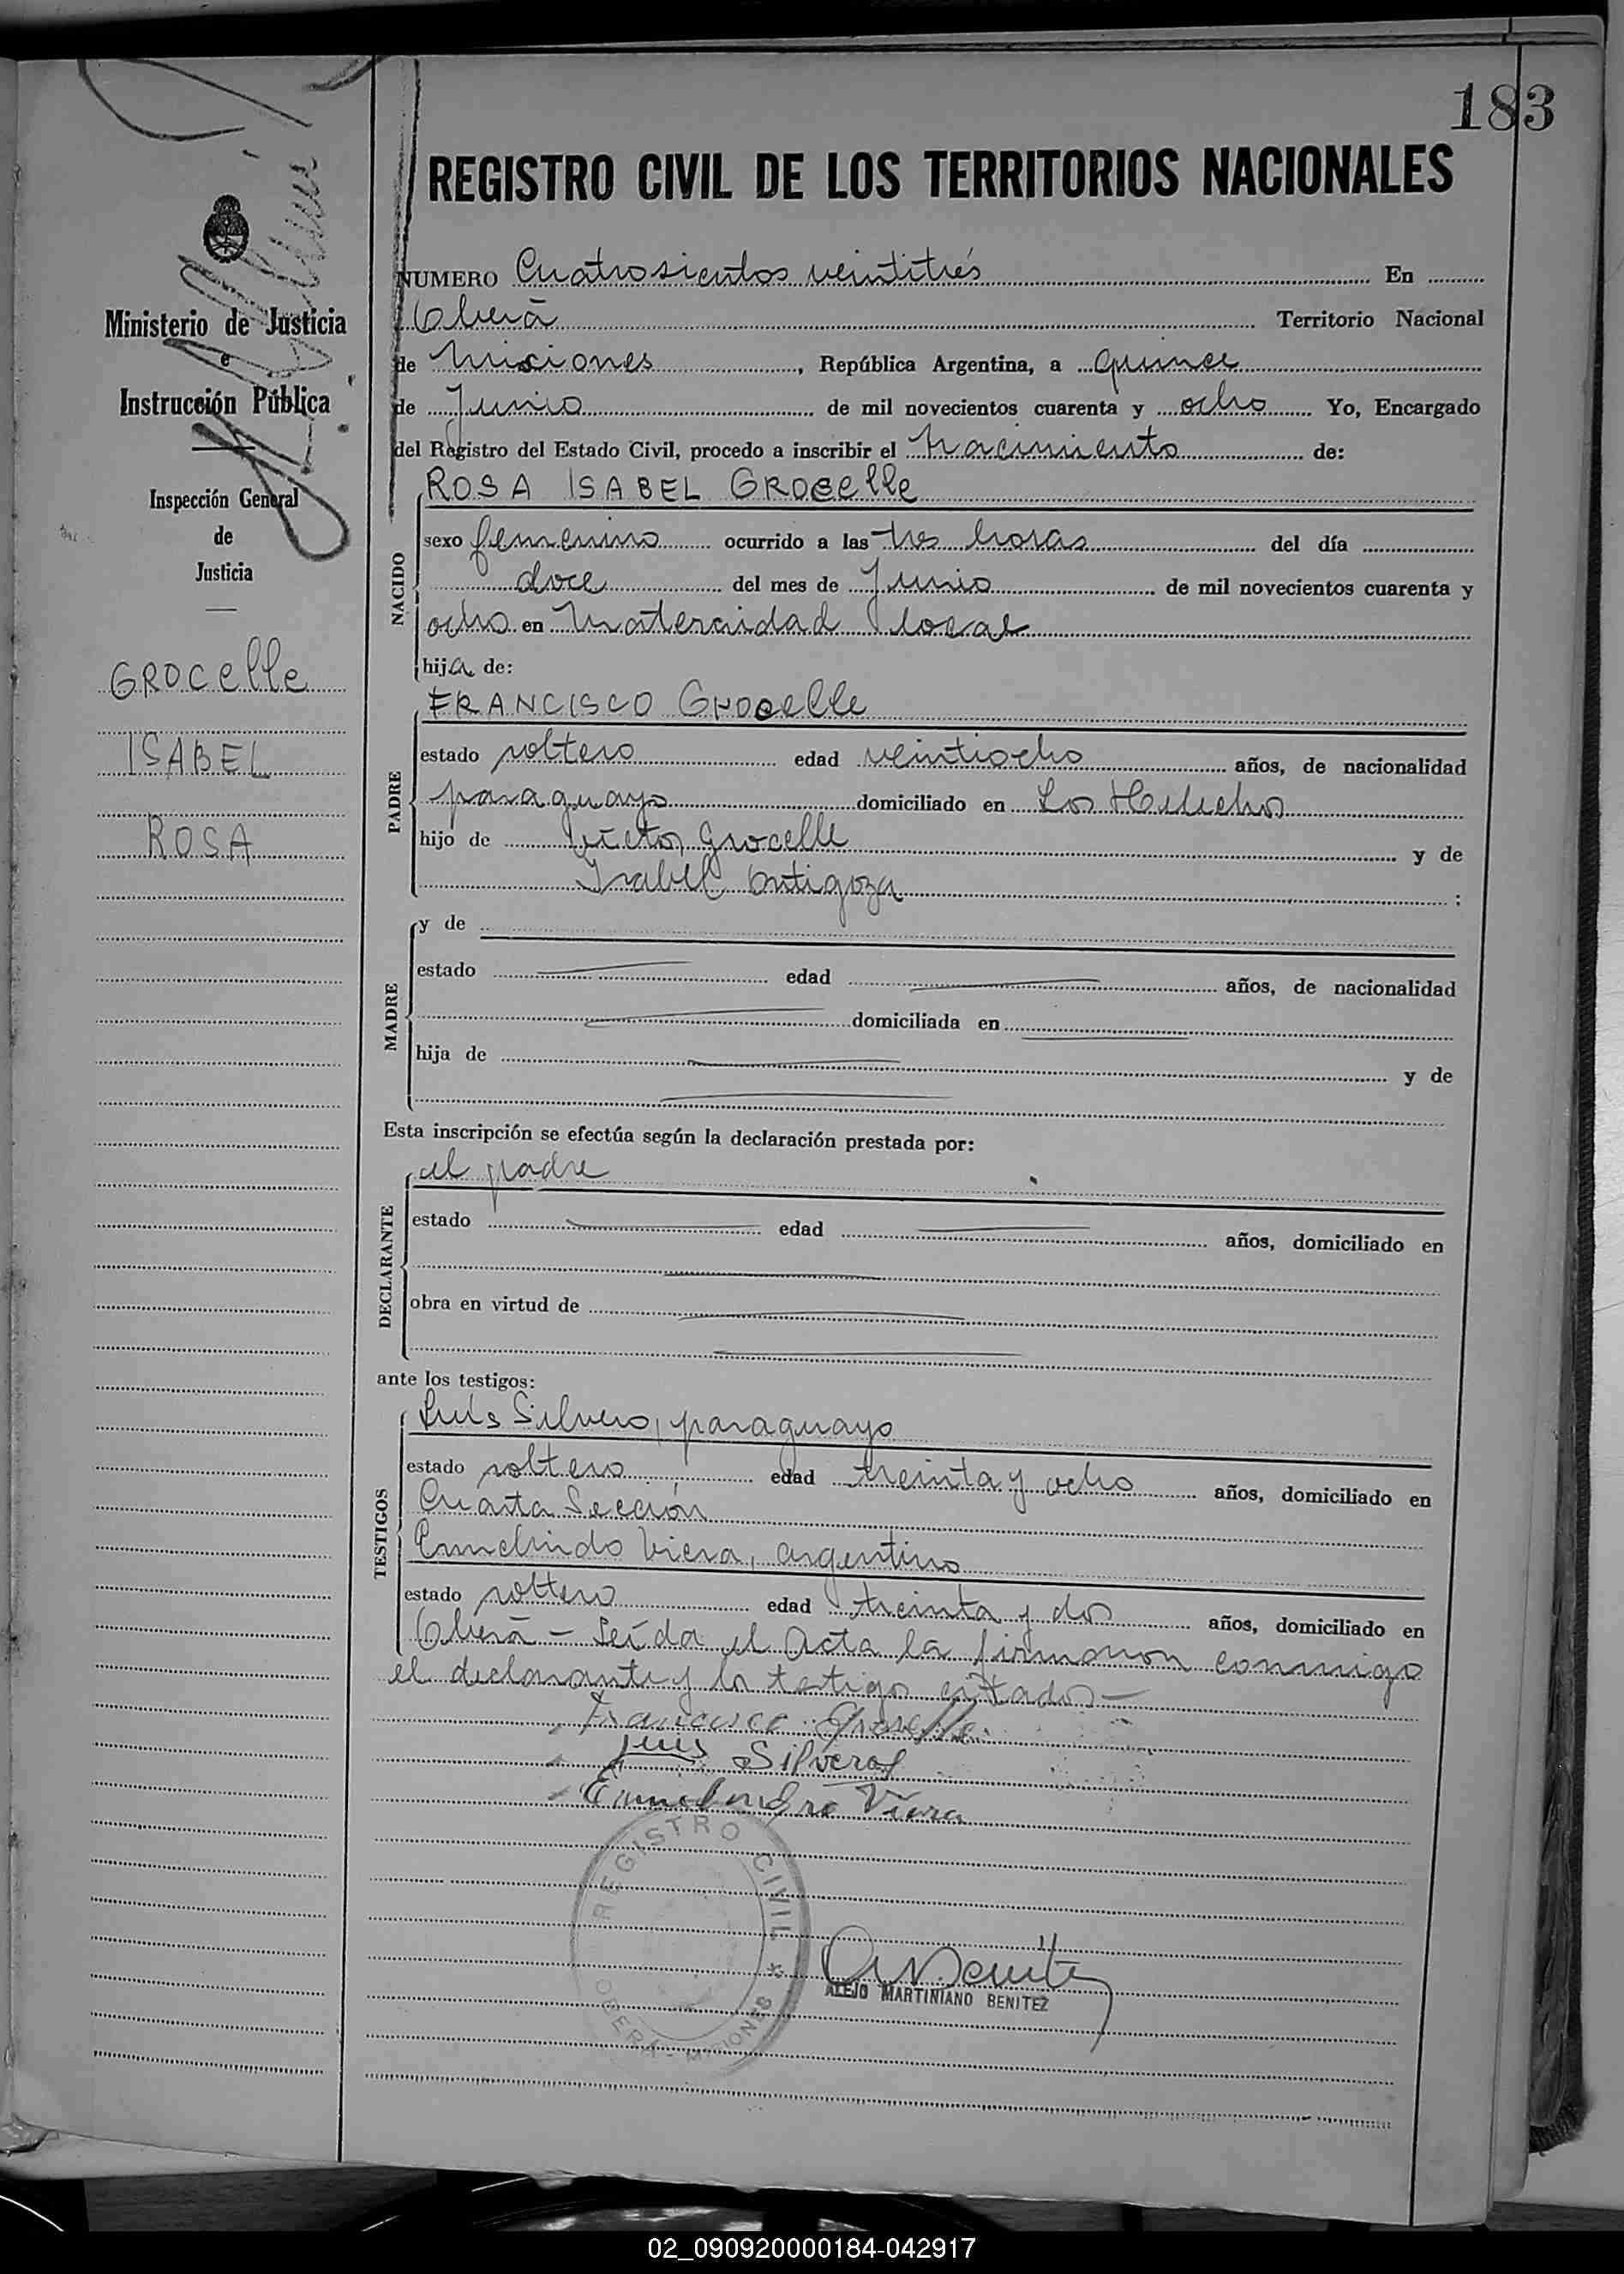 183
REGISTRO CIVIL DE LOS TERRITORIOS NACIONALES
Ministerio de Justicia
e
Instrucción Pública
Inspección General
de
Justicia
GROCelle
ISABEL
ROSA
NUMERO Cuatrosientos veintitrés En
Oberá Territorio Nacional
de Misiones, República Argentina, a quince
de Junio de mil novecientos cuarenta y ocho Yo, Encargado
del Registro del Estado Civil, procedo a inscribir el Nacimiento de:
ROSA ISABEL GROCelle
NACIDO
sexo femenino ocurrido a las tres horas del día
doce del mes de Junio de mil novecientos cuarenta y
ocho en Maternidad local
hija de:
FRANCISCO GROcelle
PADRE
estado soltero edad veintiocho años, de nacionalidad
paraguayo domiciliado en Los Helechos
hijo de Victor Grocelle y de
Isabel Ortigoza ;
MADRE
y de
estado edad años, de nacionalidad
domiciliada en
hija de y de
Esta inscripción se efectúa según la declaración prestada por:
el padre
DECLARANTE
estado edad años, domiciliado en
obra en virtud de
ante los testigos:
Luis Silvero, paraguayo
TESTIGOS
estado soltero edad treinta y ocho años, domiciliado en
Cuarta Sección
Ermelindo Viera, argentino
estado soltero edad treinta y dos años, domiciliado en
Oberá - Leída el Acta la firmaron conmigo
el declarante y los testigos citados -
Francisco Groselle
Luis Silvero
Ermelindro Viera
REGISTRO CIVIL * OBERA - MISIONES
A M Benitez
ALEJO MARTINIANO BENITEZ
02_090920000184-042917